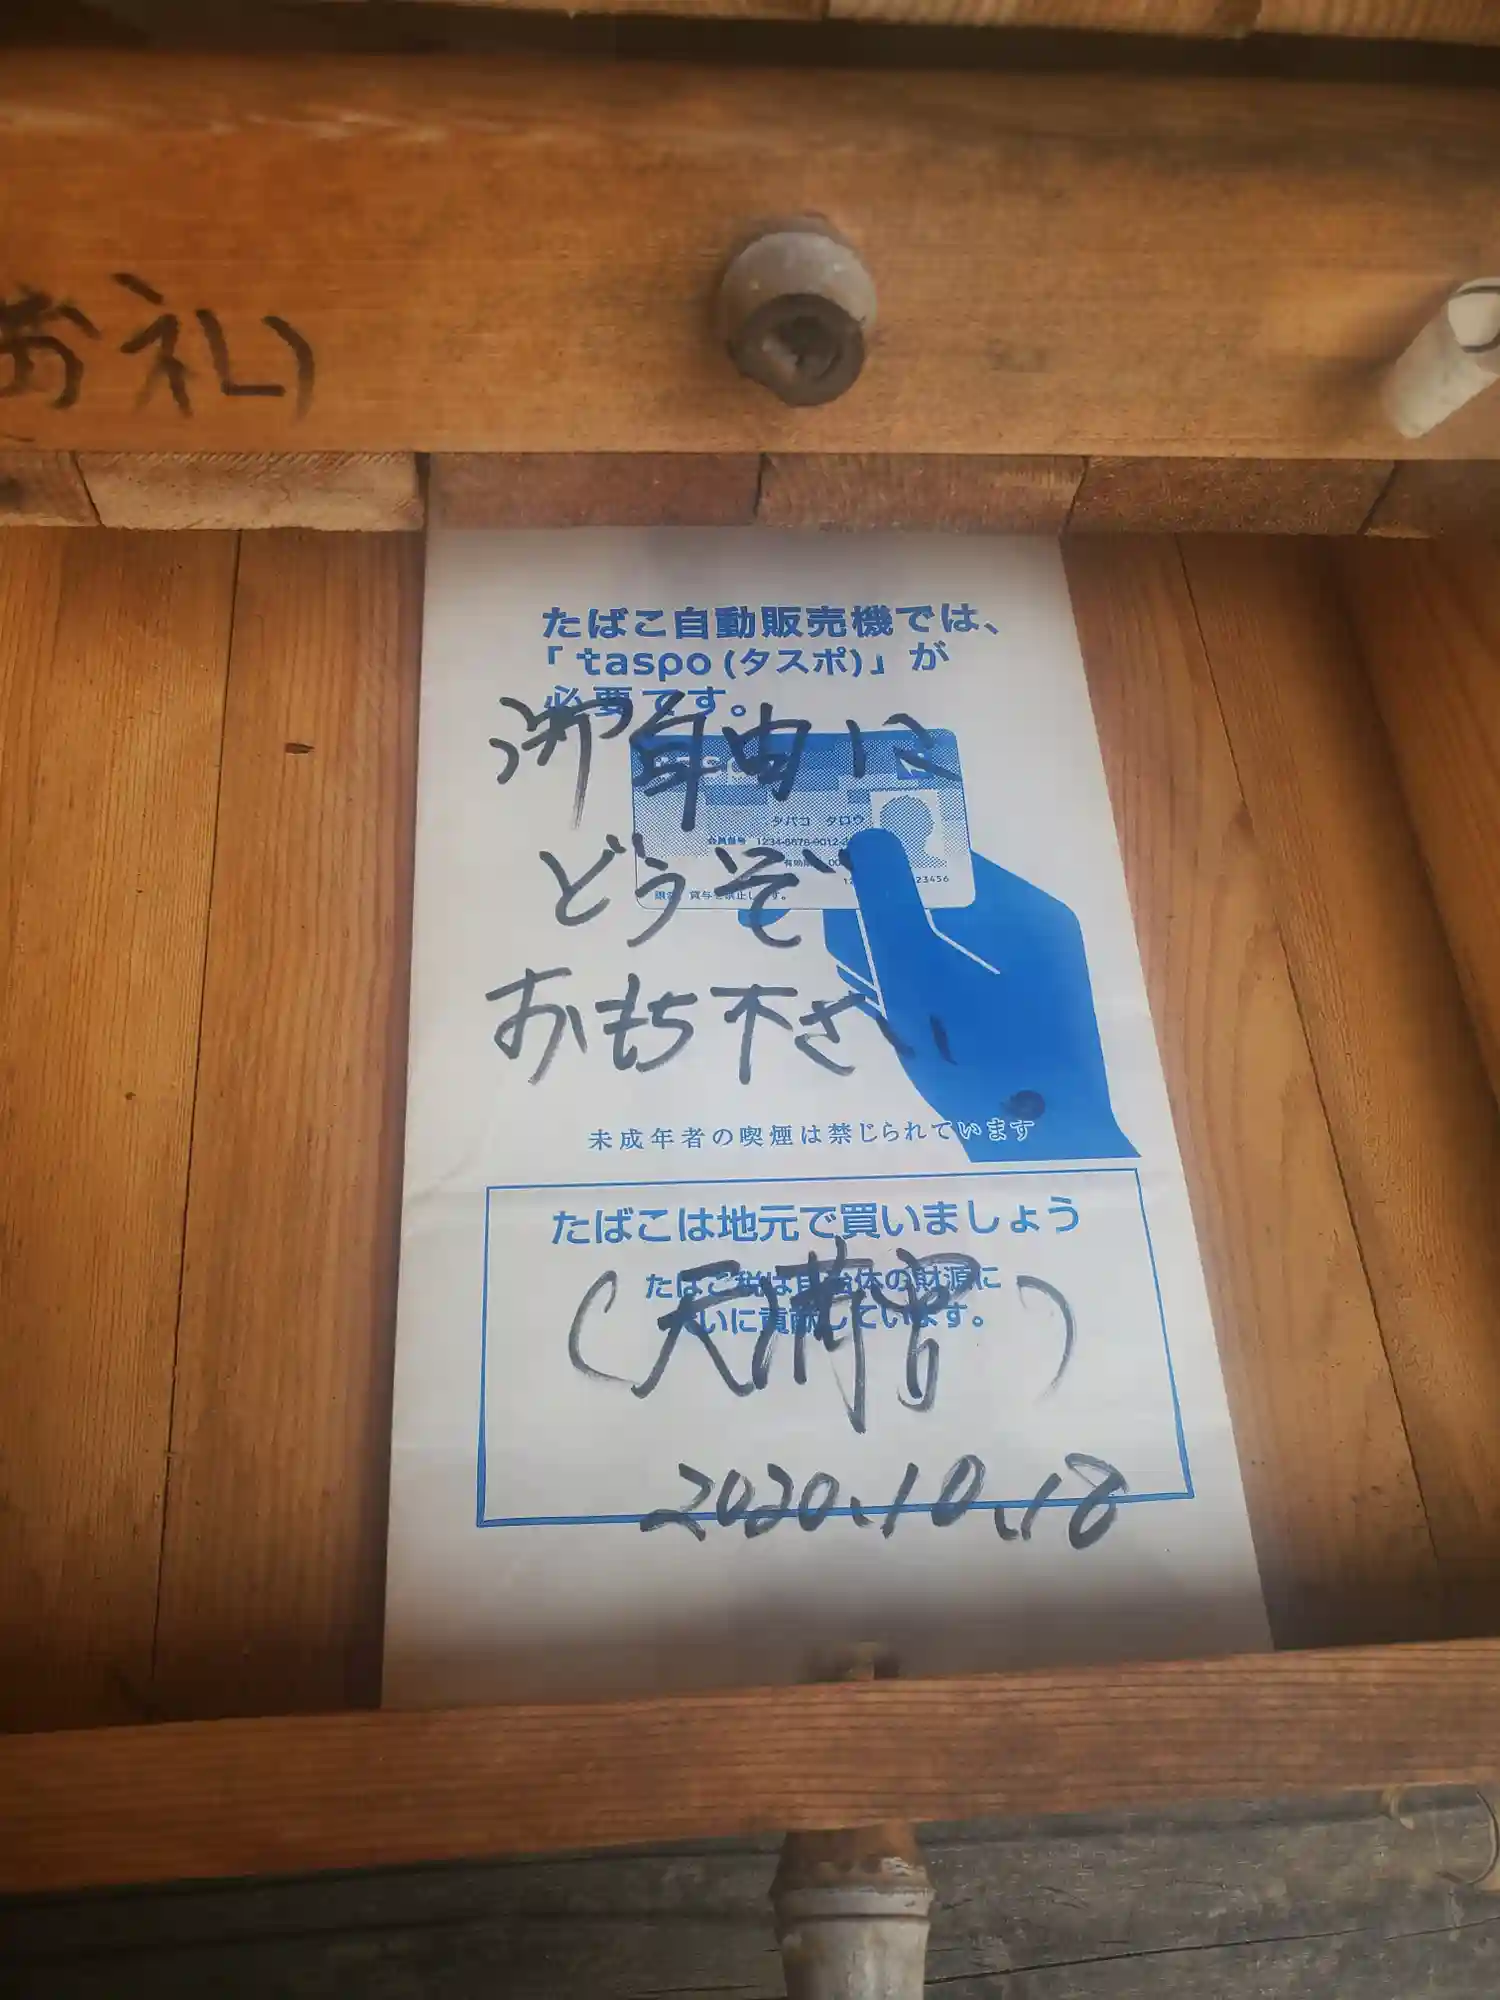 お礼)
たばこ自動販売機では、
「taspo(タスポ)」が
必要です。
御自由に
どうぞ
おもち下さい
タバコ タロウ
会員番号
未成年者の喫煙は禁じられています
たばこは地元で買いましょう
たばこ税は自治体の財源に
大いに貢献しています。
(天満宮)
2020.10.18